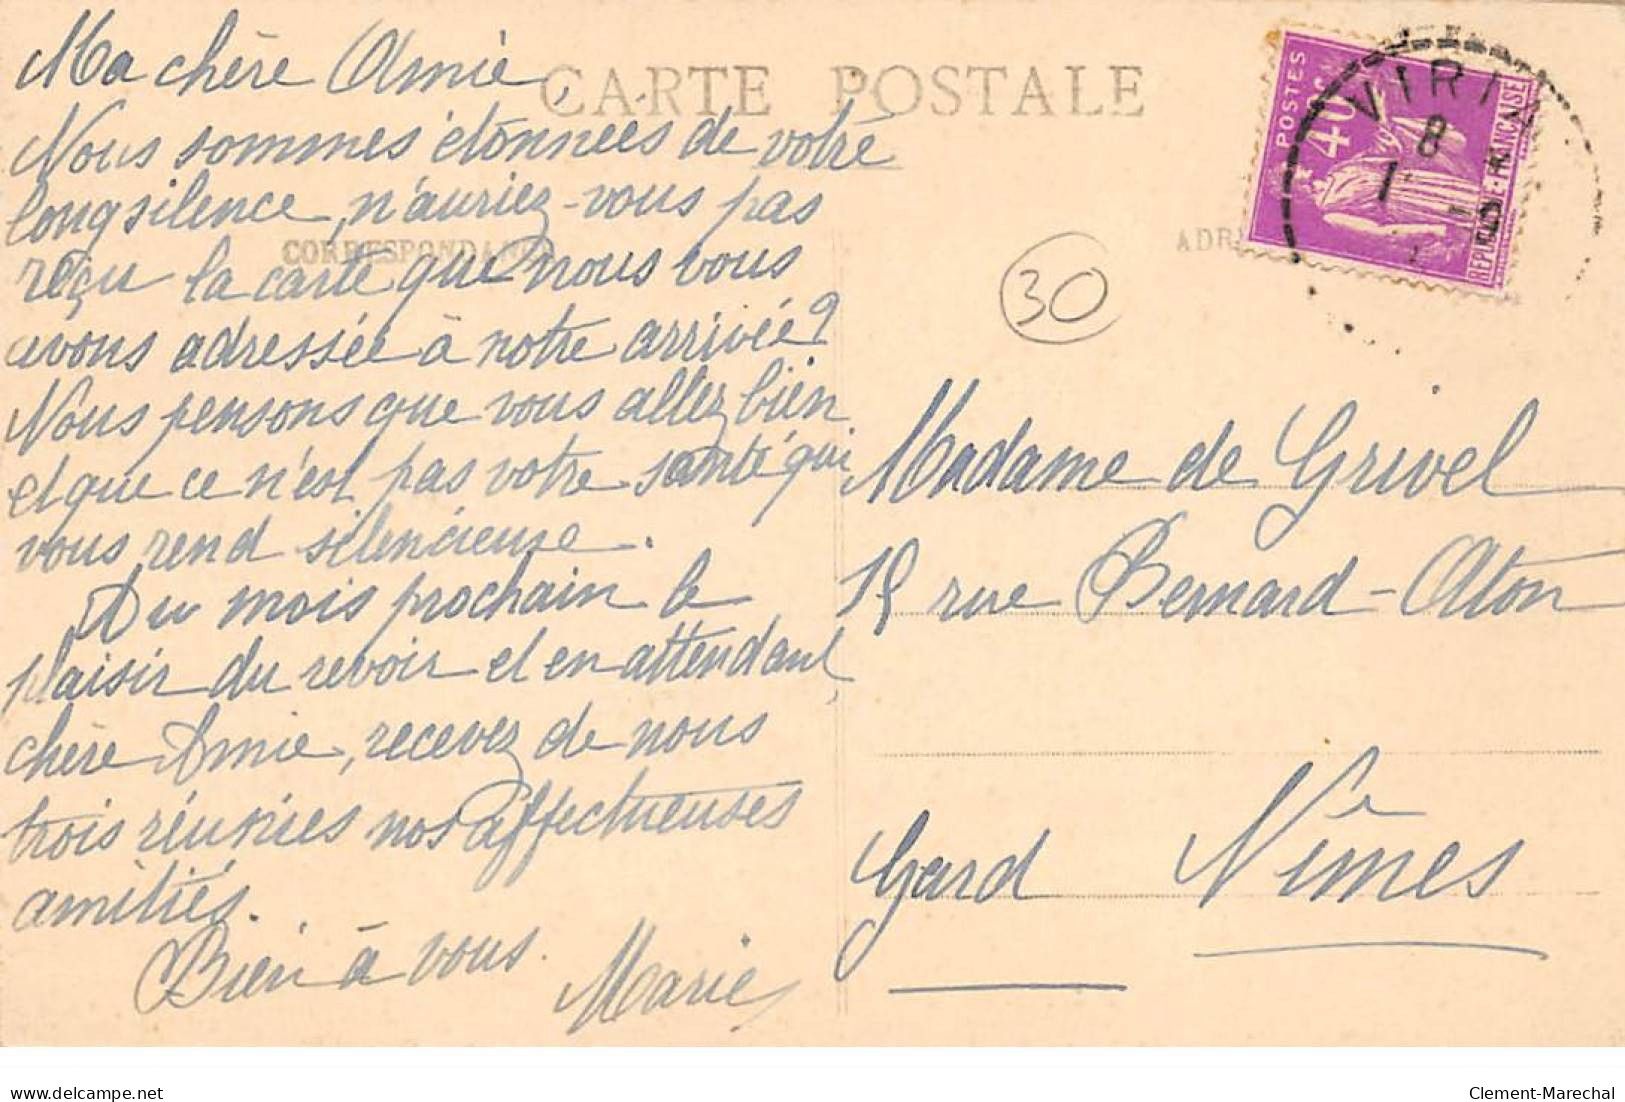 CARTE POSTALE
Ma chère Amie,
Nous sommes étonnées de votre
long silence, n'auriez-vous pas
reçu la carte que nous vous
avons adressée à notre arrivée?
Nous pensons que vous allez bien
et que ce n'est pas votre santé qui
vous rend silencieuse.
Au mois prochain le
plaisir du revoir et en attendant,
chère Amie, recevez de nous
trois réunies nos affectueuses
amitiés.
Bien à vous.
Marie
CORRESPONDANCE
ADR
30
POSTES
40c
RÉPUBLIQUE FRANÇAISE
VIRI
8
1
Madame de Grivel
15 rue Bernard-Aton
Nîmes
Gard
delcampe.net
Clement-Marechal